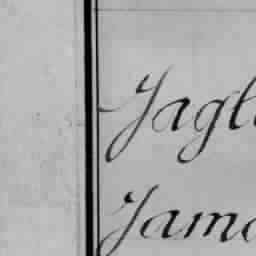 Jagl
Jamo